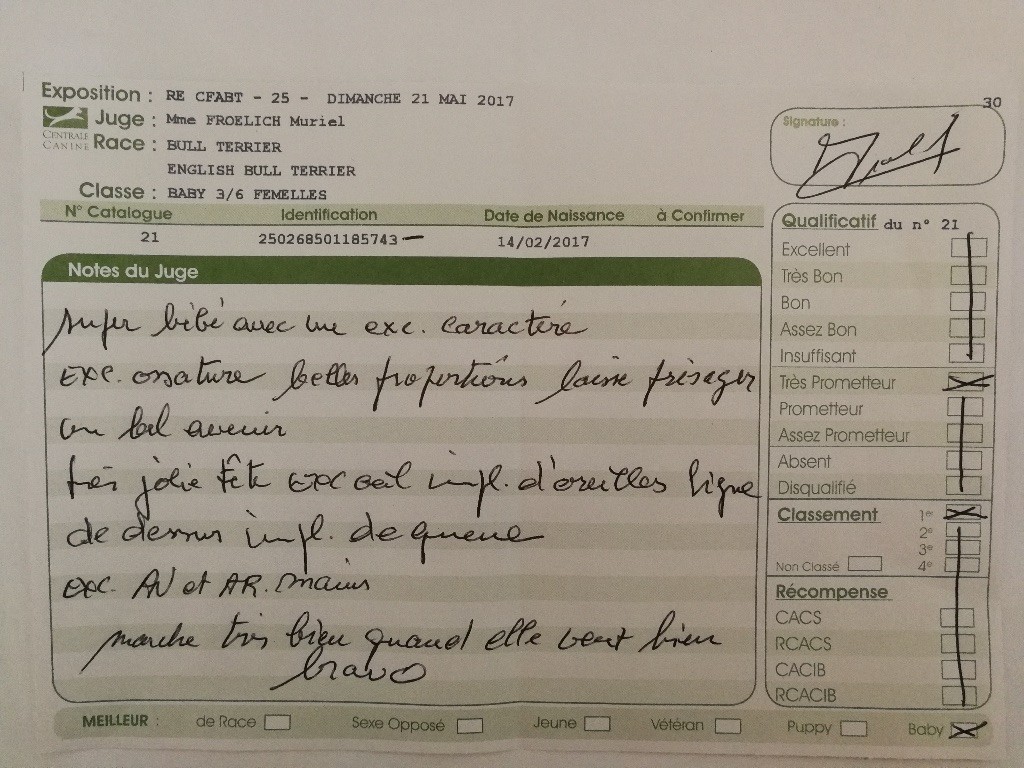 30
Exposition : RE CFABT - 25 - DIMANCHE 21 MAI 2017
CENTRALE CANINE
Juge : Mme FROELICH Muriel
Race : BULL TERRIER
ENGLISH BULL TERRIER
Classe : BABY 3/6 FEMELLES
Signature :
N° Catalogue Identification Date de Naissance à Confirmer
21 250268501185743 14/02/2017
Notes du Juge
super bébé avec un exc. caractère
exc. ossature belles proportions laisse présager
un bel avenir
très jolie tête exc oeil impl. d'oreilles ligne
de dessus impl. de queue
exc. AV et AR. mains
marche très bien quand elle veut bien
bravo
Qualificatif du n° 21
Excellent
Très Bon
Bon
Assez Bon
Insuffisant
Très Prometteur
Prometteur
Assez Prometteur
Absent
Disqualifié
Classement 1er
2e
3e
Non Classé 4e
Récompense
CACS
RCACS
CACIB
RCACIB
MEILLEUR : de Race Sexe Opposé Jeune Vétéran Puppy Baby